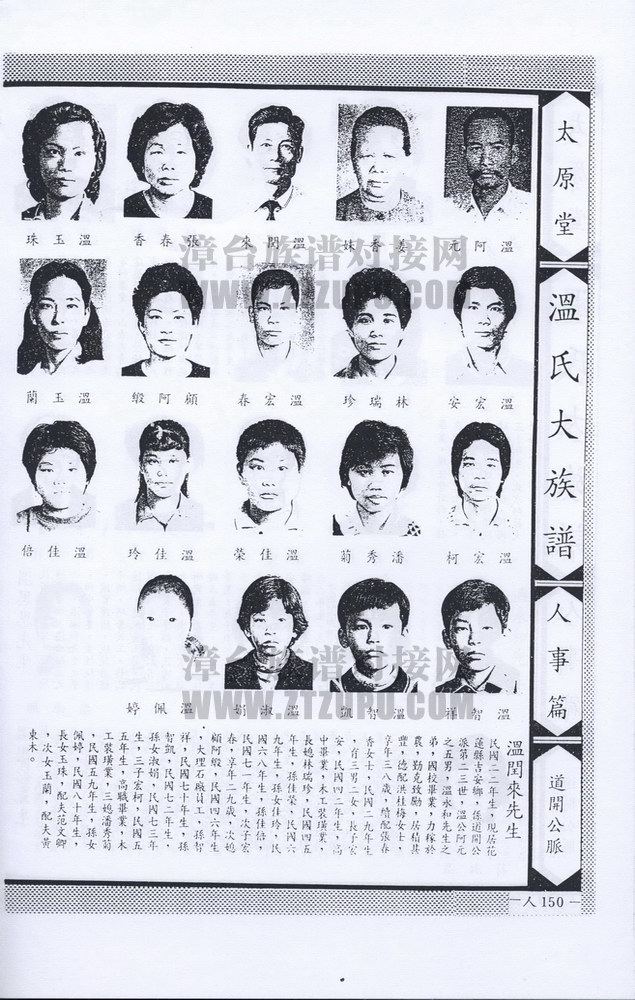 太原堂
溫氏大族譜
人事篇
道開公脈
溫阿元
姜香妹
溫閏來
張春香
溫玉珠
溫宏安
林瑞珍
溫宏春
顧阿緞
溫玉蘭
溫宏柯
潘秀菊
溫佳榮
溫佳玲
溫佳倍
溫智祥
溫智凱
溫淑娟
溫佩婷
溫閏來先生
民國二二年生，現居花
蓮縣吉安鄉，係道開公
派第二三世，溫公阿元
之五男，溫永和先生之
弟，國校畢業，力稼於
農，勤克致勵，居積其
豐，德配洪桂梅女士，
享年三八歲，續配張春
香女士，民國二九年生
，育三男二女，長子宏
安，民國四二年生，高
中畢業，木工裝璜業，
長媳林瑞珍，民國四五
年生，孫佳榮，民國六
九年生，孫女佳玲，民
國六八年生，孫佳倍，
民國七一年生，次子宏
春，享年二九歲，次媳
顧阿緞，民國四六年生
，大理石廠員工，孫智
祥，民國七十年生，孫
智凱，民國七二年生，
孫女淑娟，民國七三年
生，三子宏柯，民國五
五年生，高職畢業，木
工裝璜業，三媳潘秀菊
，民國五九年生，孫女
佩婷，民國八十年生，
長女玉珠，配夫范文卿
，次女玉蘭，配夫黃
東木。
人150
漳台族谱对接网
www.ztzupu.com
漳台族谱对接网
www.ztzupu.com